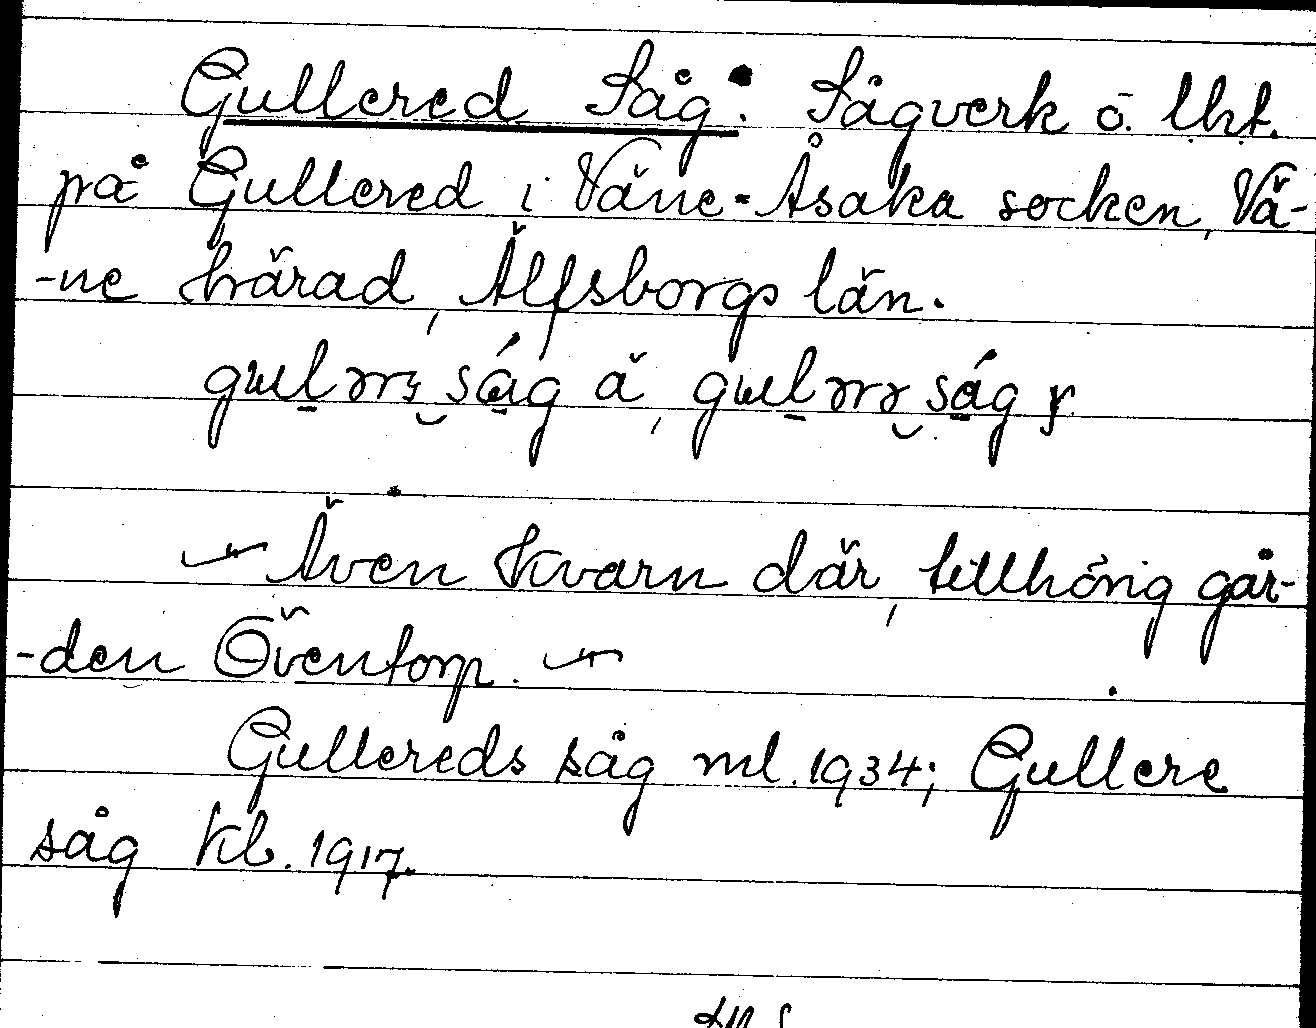 Gullered Såg: Sågverk o. lht.
på Gullered i Väne-Åsaka socken, Vä-
-ne härad, Älfsborgs län.
Även Kvarn där, tillhörig går-
-den Öventorp.
Gullereds såg ml. 1934; Gullere
såg kb. 1917.